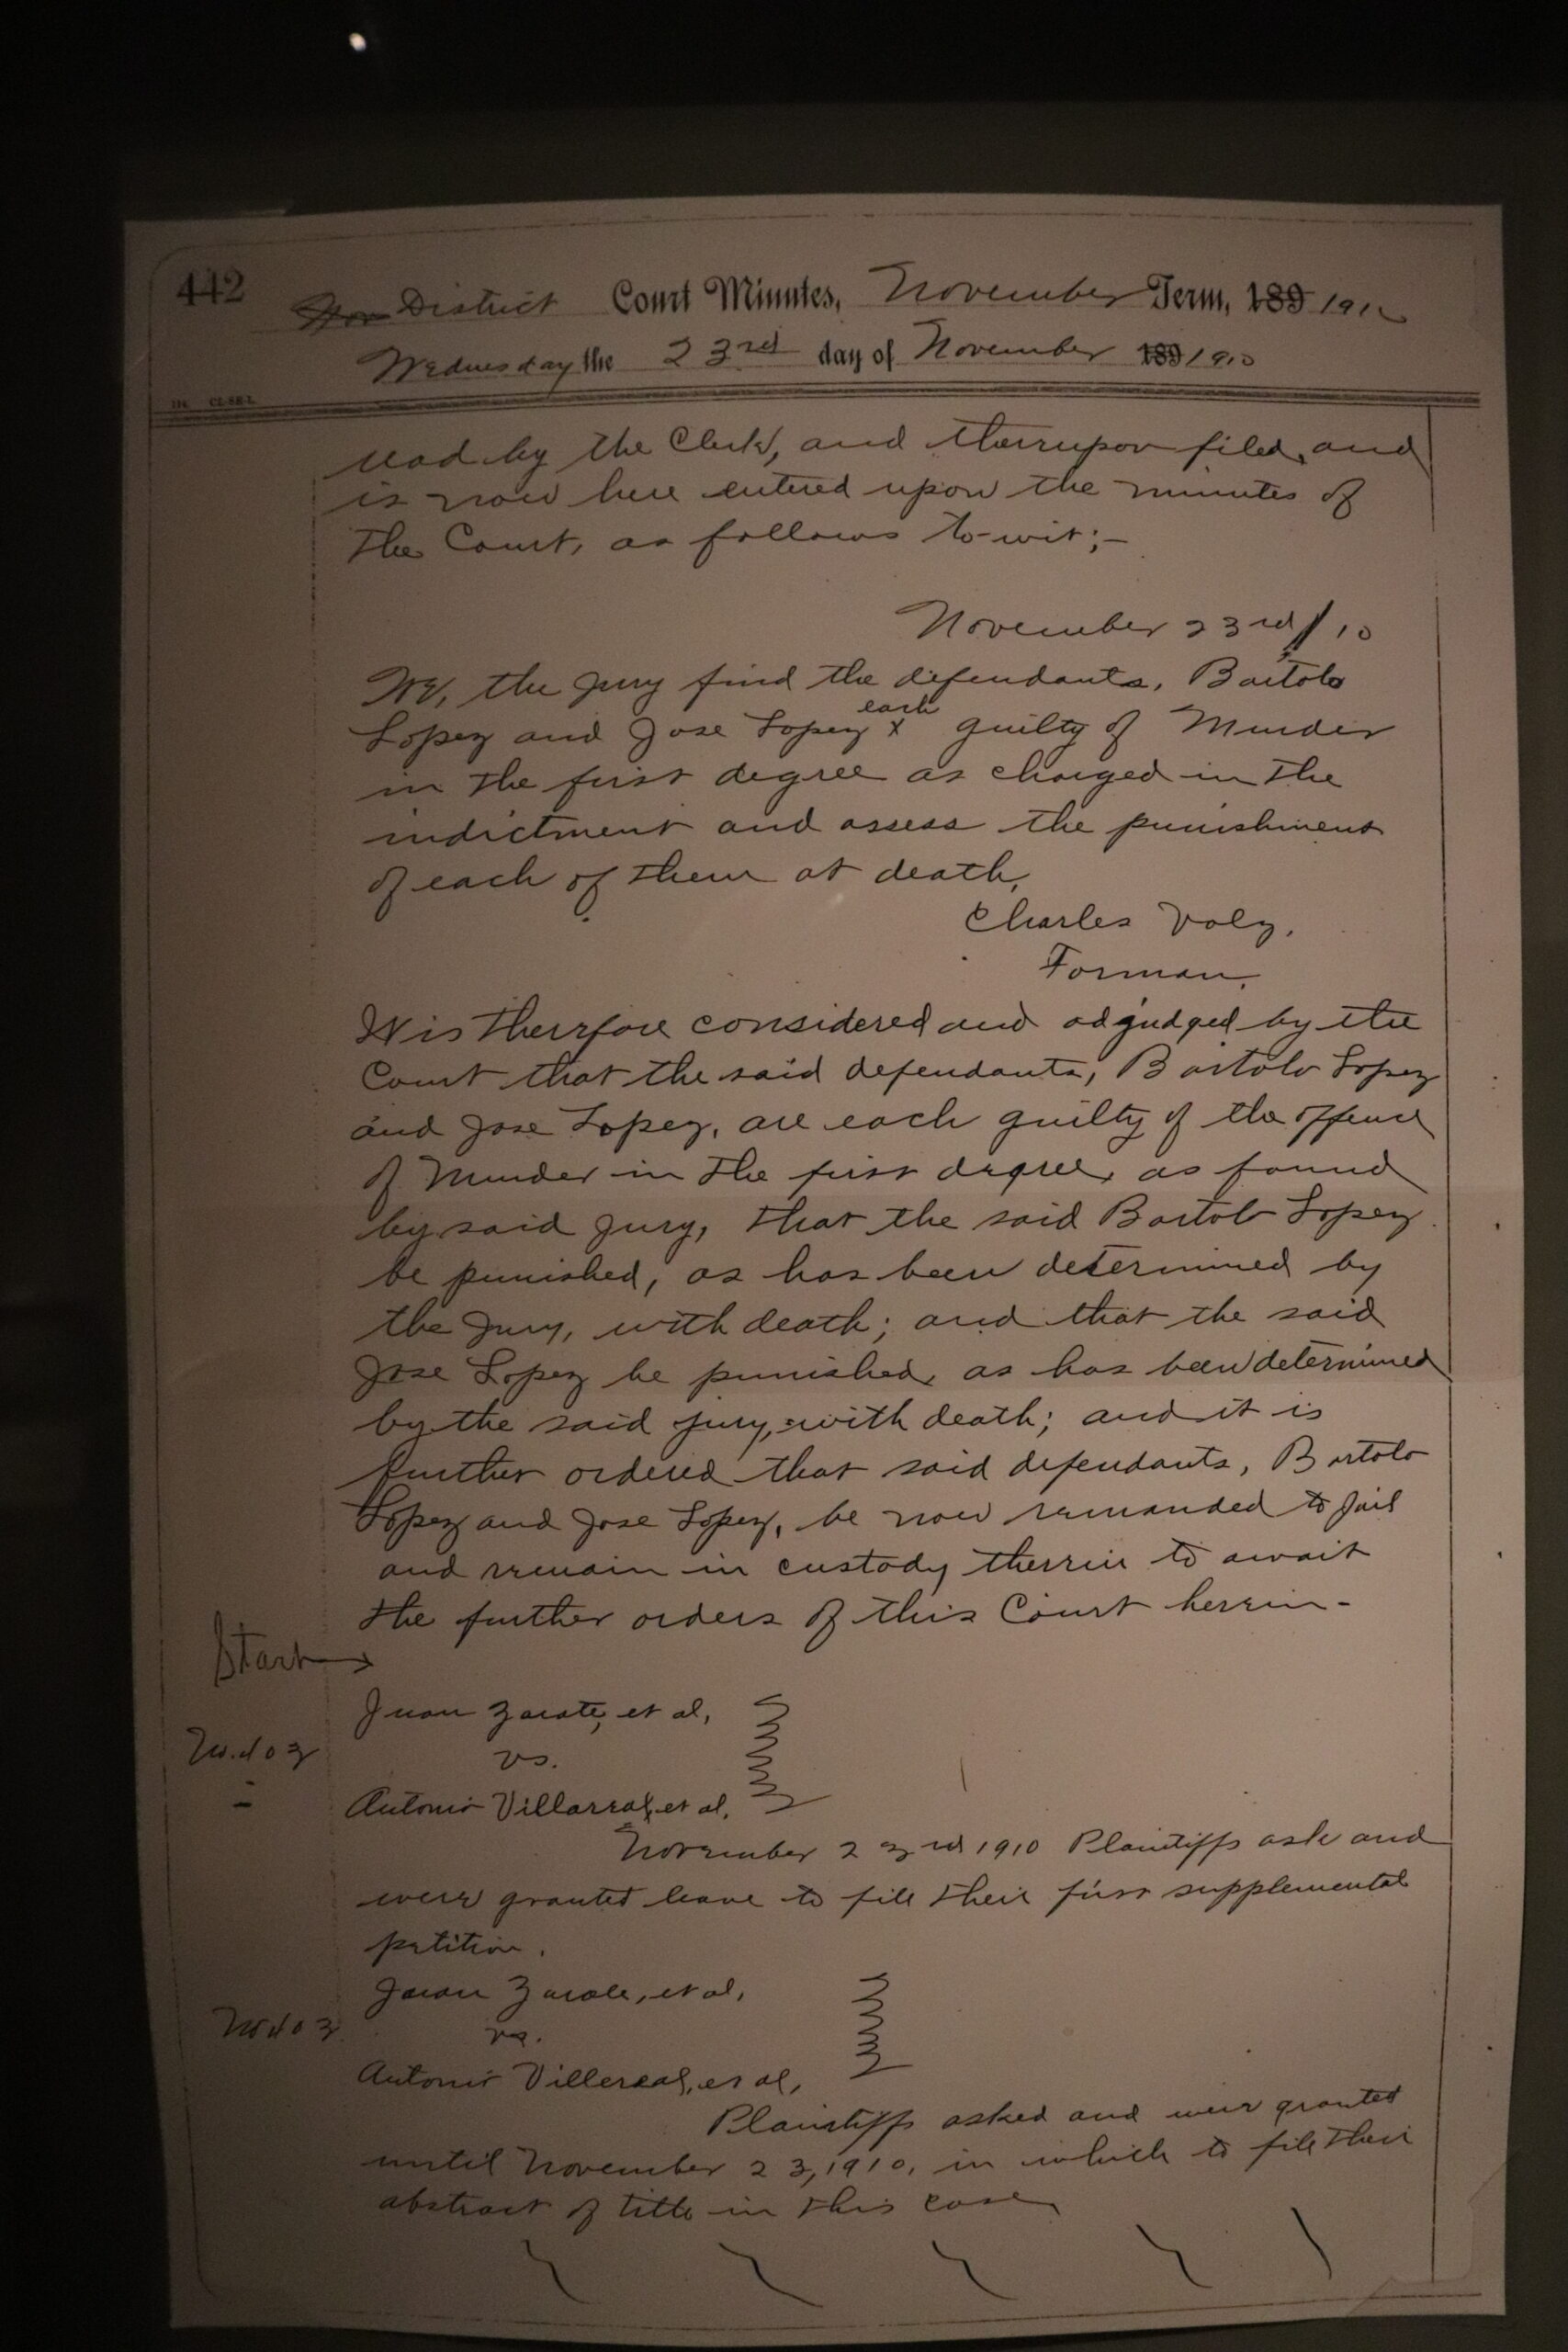 442
District Court Minutes, November Term, 189 1910
Wednesday the 23rd day of November 189 1910
read by the Clerk, and thereupon filed, and
is now here entered upon the minutes of
the Court, as follows to-wit;-
November 23rd/10
We, the Jury find the defendants, Bartolo
each
Lopez and Jose Lopez x guilty of Murder
in the first degree as charged in the
indictment and assess the punishment
of each of them at death,
Charles Volz,
Forman,
It is therefore considered and adjudged by the
Court that the said defendants, Bartolo Lopez
and Jose Lopez, are each guilty of the offence
of Murder in the first degree, as found
by said Jury, that the said Bartolo Lopez
be punished, as has been determined by
the Jury, with death; and that the said
Jose Lopez be punished, as has been determined
by the said jury, with death; and it is
further ordered that said defendants, Bartolo
Lopez and Jose Lopez, be now remanded to Jail
and remain in custody therein to await
the further orders of this Court herein-
Start →
Juan Zarate, et al,
No. 403
vs.
Antonio Villarreal, et al,
November 23rd 1910 Plaintiffs ask and
were granted leave to file their first supplemental
petition.
Juan Zarate, et al,
No 403
vs.
Antonio Villereal, et al,
Plaintiffs asked and were granted
until November 23, 1910, in which to file their
abstract of title in this case